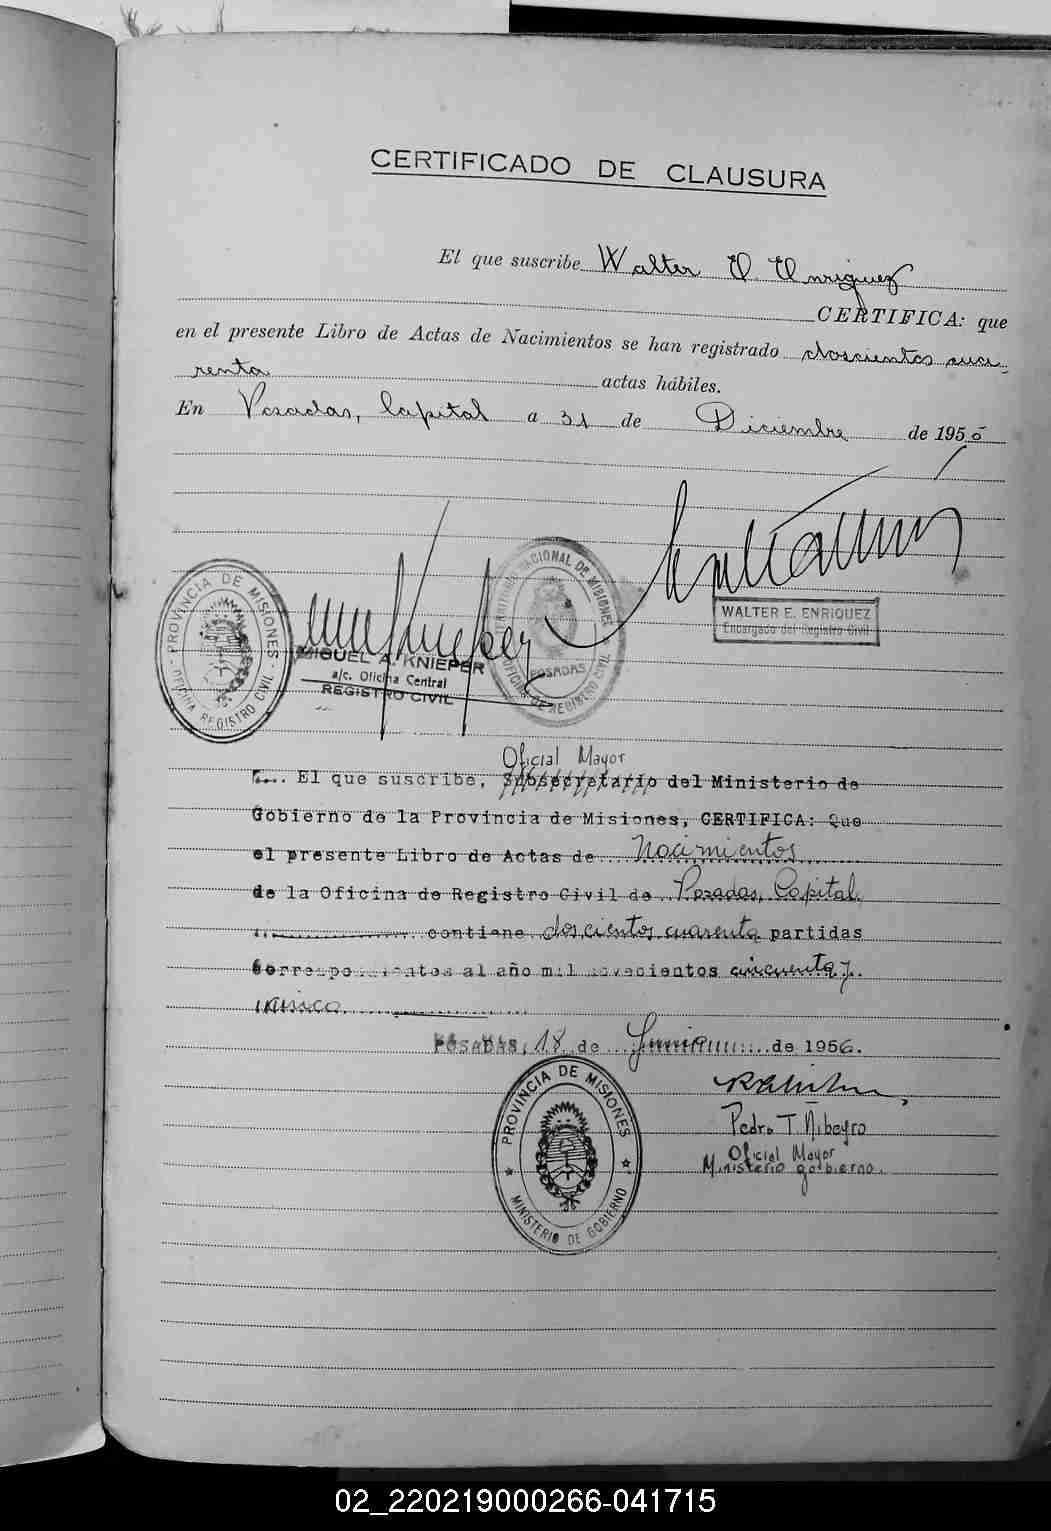 CERTIFICADO DE CLAUSURA
El que suscribe Walter E. Enriquez
CERTIFICA: que
en el presente Libro de Actas de Nacimientos se han registrado doscientos cua-
renta actas hábiles.
En Posadas, Capital a 31 de Diciembre de 1955
PROVINCIA DE MISIONES
OFICINA REGISTRO CIVIL
MIGUEL A. KNIEPER
a/c. Oficina Central
REGISTRO CIVIL
TERRITORIO NACIONAL DE MISIONES
POSADAS
OFICINA DE REGISTRO CIVIL
WALTER E. ENRIQUEZ
Encargado del Registro Civil
Oficial Mayor
El que suscribe, Subsecretario del Ministerio de
Gobierno de la Provincia de Misiones, CERTIFICA: Que
el presente Libro de Actas de Nacimientos
de la Oficina de Registro Civil de Posadas, Capital
contiene doscientos cuarenta partidas
correspondientes al año mil novecientos cincuenta y
cinco
POSADAS, 18 de Junio de 1956.
PROVINCIA DE MISIONES
MINISTERIO DE GOBIERNO
Pedro T. Ribeyro
Oficial Mayor
Ministerio gobierno.
02_220219000266-041715